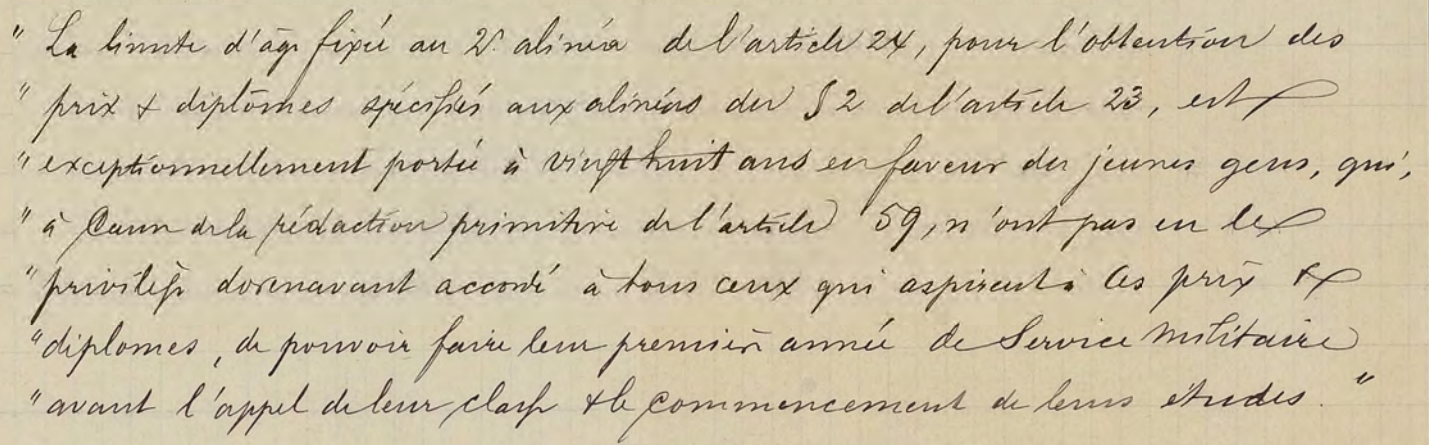 " La limite d'âge fixée au 2e alinéa de l'article 24, pour l'obtention des
" prix & diplômes spécifiés aux alinéas du § 2 de l'article 23, est
" exceptionnellement portée à vingt huit ans en faveur des jeunes gens, qui,
" à Cause de la rédaction primitive de l'article 59, n'ont pas eu le
" privilège dorenavant accordé à tous ceux qui aspirent à ces prix &
" diplomes, de pouvoir faire leur première année de Service militaire
" avant l'appel de leur classe & le commencement de leurs études. "